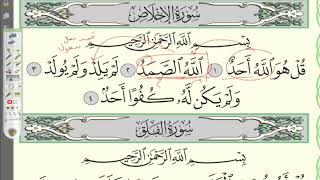 سُورَةُ الإِخْلَاصِ
بِسْمِ اللَّهِ الرَّحْمَٰنِ الرَّحِيمِ
قُلْ هُوَ اللَّهُ أَحَدٌ ١ اللَّهُ الصَّمَدُ ٢ لَمْ يَلِدْ وَلَمْ يُولَدْ ٣
وَلَمْ يَكُن لَّهُ كُفُوًا أَحَدٌ ٤
سُورَةُ الفَلَقِ
بِسْمِ اللَّهِ الرَّحْمَٰنِ الرَّحِيمِ